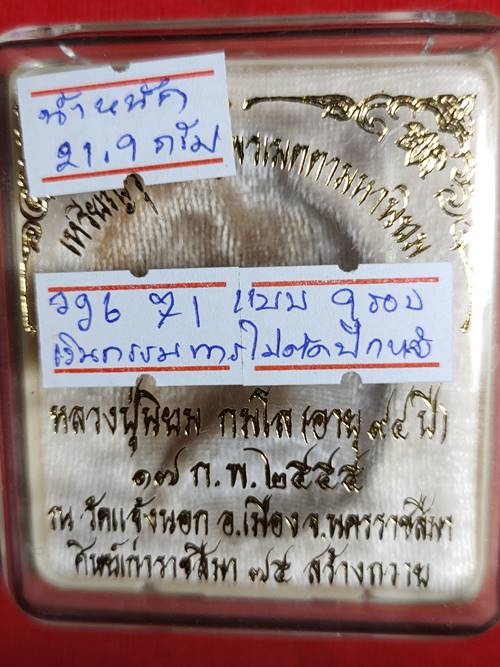 น้ำหนัก
21.9 กรัม
เหรียญ พรเมตตามหานิยม
71 แบบ 9 รอบ
เงินกรรมการไม่ตัดปีกหลัง
หลวงปู่นิยม กมโล (อายุ ๙๔ ปี)
๑๗ ก.พ. ๒๕๕๕
ณ วัดแจ้งนอก อ.เมือง จ.นครราชสีมา
ศิษย์เก่าราชสีมา ๗๕ สร้างถวาย